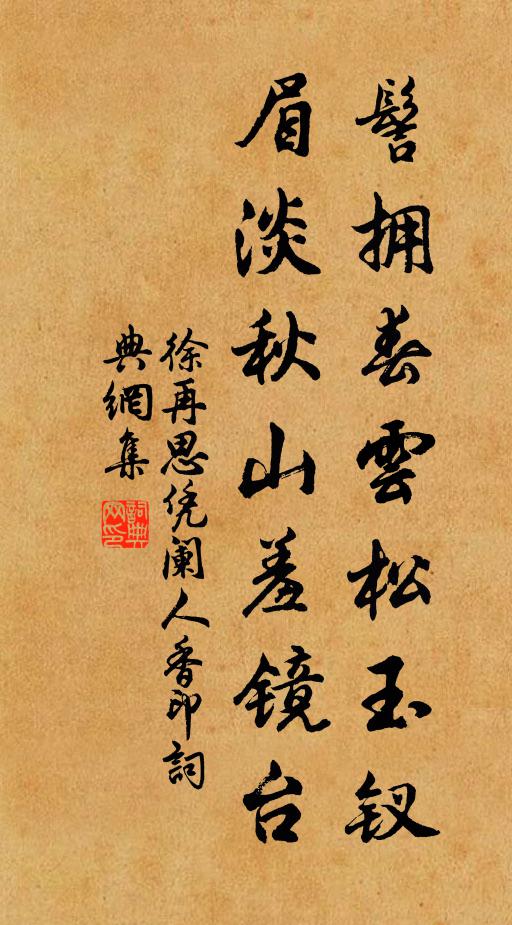 髻拥春雲松玉钗
眉淡秋山羞镜台
徐再思凭阑人香印詞
典網集
詞典網印